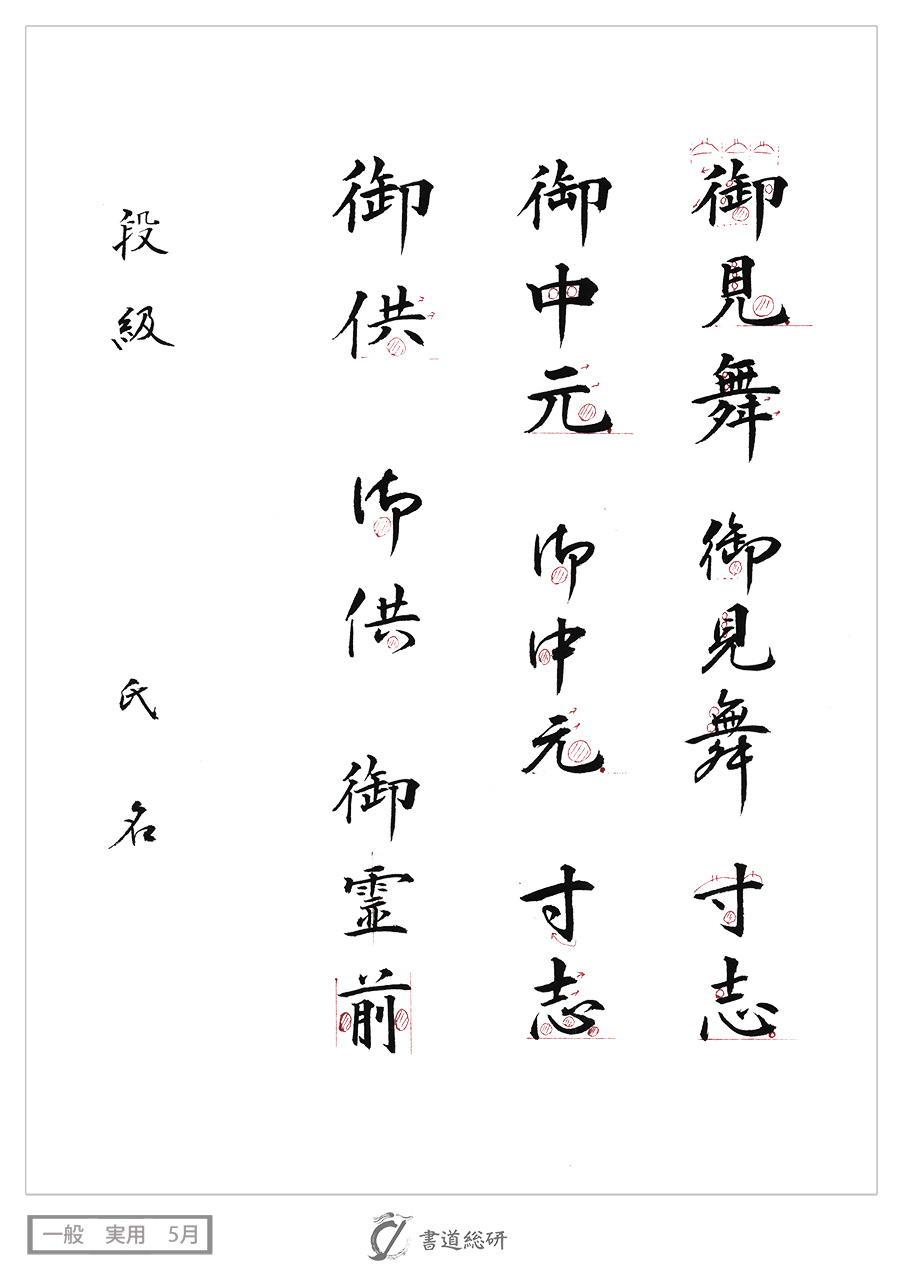 御見舞 御見舞 寸志
御中元 御中元 寸志
御供 御供 御霊前
段級 氏名
一般 実用 5月
書道総研